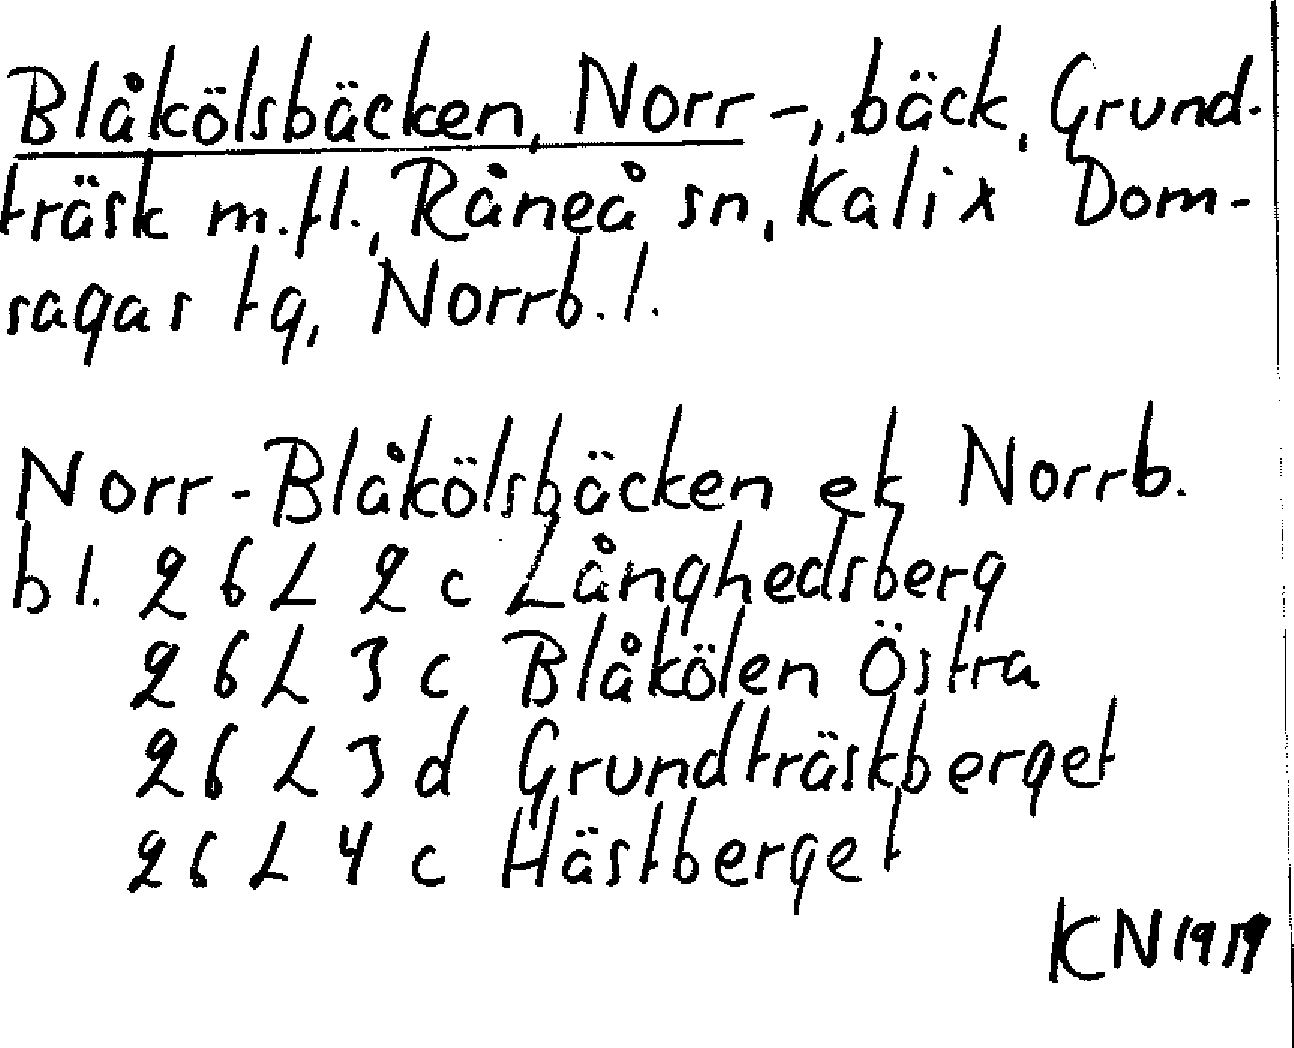 Blåkölsbäcken, Norr -, bäck, Grund-
träsk m.fl., Råneå sn, Kalix Dom-
sagas tg, Norrb. l.
Norr-Blåkölsbäcken ek Norrb.
bl. 26 L 2 c Långhedsberg
26 L 3 c Blåkölen Östra
26 L 3 d Grundträskberget
26 L 4 c Hästberget
KN